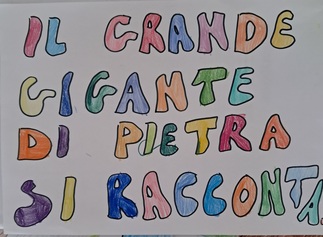 IL GRANDE
GIGANTE
DI PIETRA
SI RACCONTA